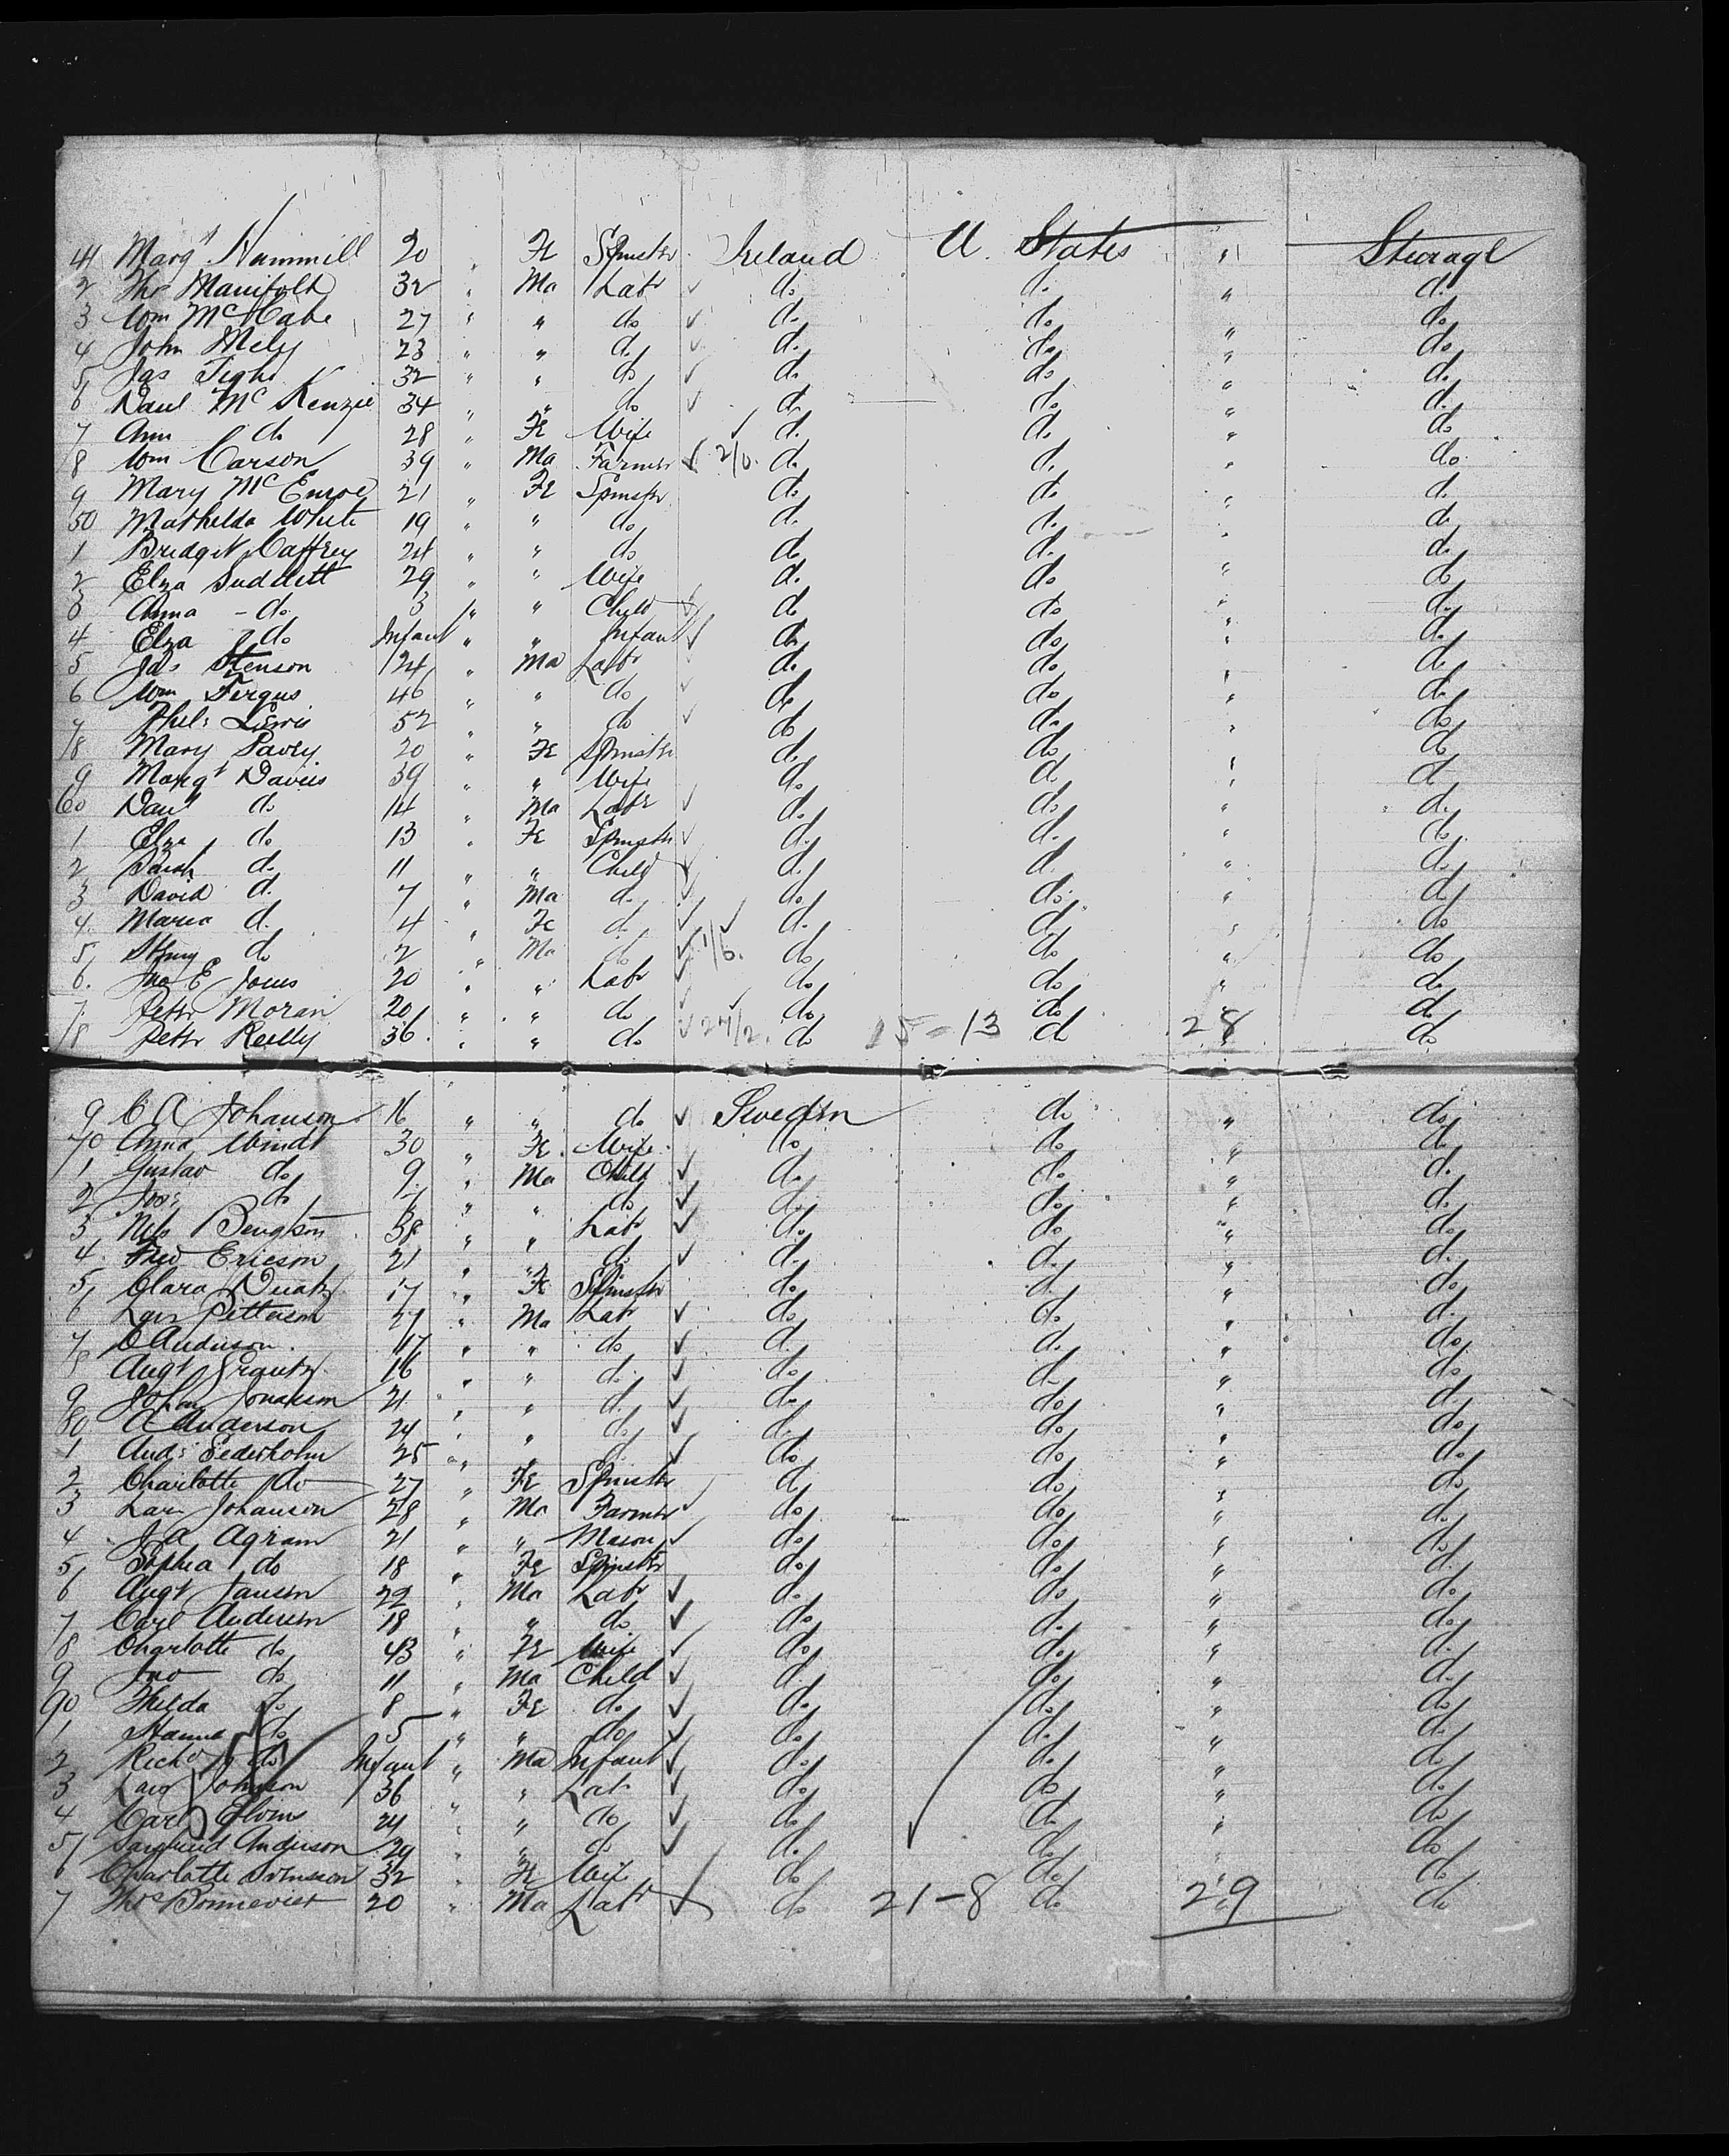 41 Margt Hammill 20 " Fe Spinster Ireland U. States " Steerage
2 Thos Manifold 32 " Ma Labr ✓ do do " do
3 Wm McCabe 27 " " do ✓ do do " do
4 John Mely 23 " " do ✓ do do " do
5 Jas Tighe 32 " " do ✓ do do " do
6 Danl McKenzie 34 " " do ✓ do do " do
7 Ann do 28 " Fe Wife ✓ do do " do
8 Wm Carson 39 " Ma Farmer ✓ 2/6. do do " do
9 Mary McEnroe 21 " Fe Spinster do do " do
50 Mathilda White 19 " " do do do " do
1 Bridget Caffrey 24 " " do do do " do
2 Elza Suddett 29 " " Wife do do " do
3 Anna - do 3 " " Child ✓ do do " do
4 Elza do Infant " " Infant ✓ do do " do
5 Jas Stenson 24 " Ma Labr do do " do
6 Wm Fergus 46 " " do ✓ do do " do
7 Lewis 52 " " do ✓ do do " do
8 Mary Pavey 20 " Fe Spinster do do " do
9 Margt Davies 39 " " Wife do do " do
60 Danl do 14 " Ma Labr ✓ do do " do
1 Elza do 13 " Fe Spinster ✓ do do " do
2 Sarah do 11 " " Child ✓ do do " do
3 David do 7 " Ma do ✓ do do " do
4 Maria do 4 " Fe do ✓ ✓ do do " do
5 Henry do 2 " Ma do ✓ 1/6. do do " do
6 Jno E Jones 20 " " Labr ✓ do do " do
7 Peter Moran 20 " " do ✓ ✓ do do " do
8 Peter Reilly 36 " " do ✓ 24/2. do 15-13 do 28 do
9 C A Johanson 16 " " do ✓ Sweden do " do
70 Anna Windt 30 " Fe Wife do do " do
1 Gustav do 9 " Ma Child ✓ do do " do
2 do " " do ✓ do do " do
3 Nils Bengtson 38 " " Labr ✓ do do " do
4 Fred Ericson 21 " " do ✓ do do " do
5 Clara 17 " Fe Spinster do do " do
6 Lars Petterson 27 " Ma Labr ✓ do do " do
7 C Anderson 17 " " do ✓ do do " do
8 Augt 16 " " do ✓ do do " do
9 Johan Jonasson 21 " " do ✓ do do " do
80 A Anderson 24 " " do ✓ do do " do
1 Ands Cederholm 25 " " do ✓ do do " do
2 Charlotte do 27 " Fe Spinster do do " do
3 Lars Johanson 28 " Ma Farmer ✓ do do " do
4 J A Agram 21 " " Mason ✓ do do " do
5 Sophia do 18 " Fe Spinster do do " do
6 Augt Janson 22 " Ma Labr ✓ do do " do
7 Carl Anderson 18 " " do ✓ do do " do
8 Charlotte do 43 " Fe Wife ✓ do do " do
9 Jno do 11 " Ma Child ✓ do do " do
90 Thilda do 8 " Fe do ✓ do do " do
1 Hanna do 5 " " do ✓ do do " do
2 Richd do Infant " Ma Infant ✓ do do " do
3 Lars Johnson 36 " " Labr ✓ do do " do
4 Carl 24 " " do ✓ do do " do
5 Anderson 29 " " do ✓ do do " do
6 Charlotte Johnsson 32 " Fe Wife do do " do
7 Thos Bonnevier 20 " Ma Labr ✓ do 21-8 do 29 do